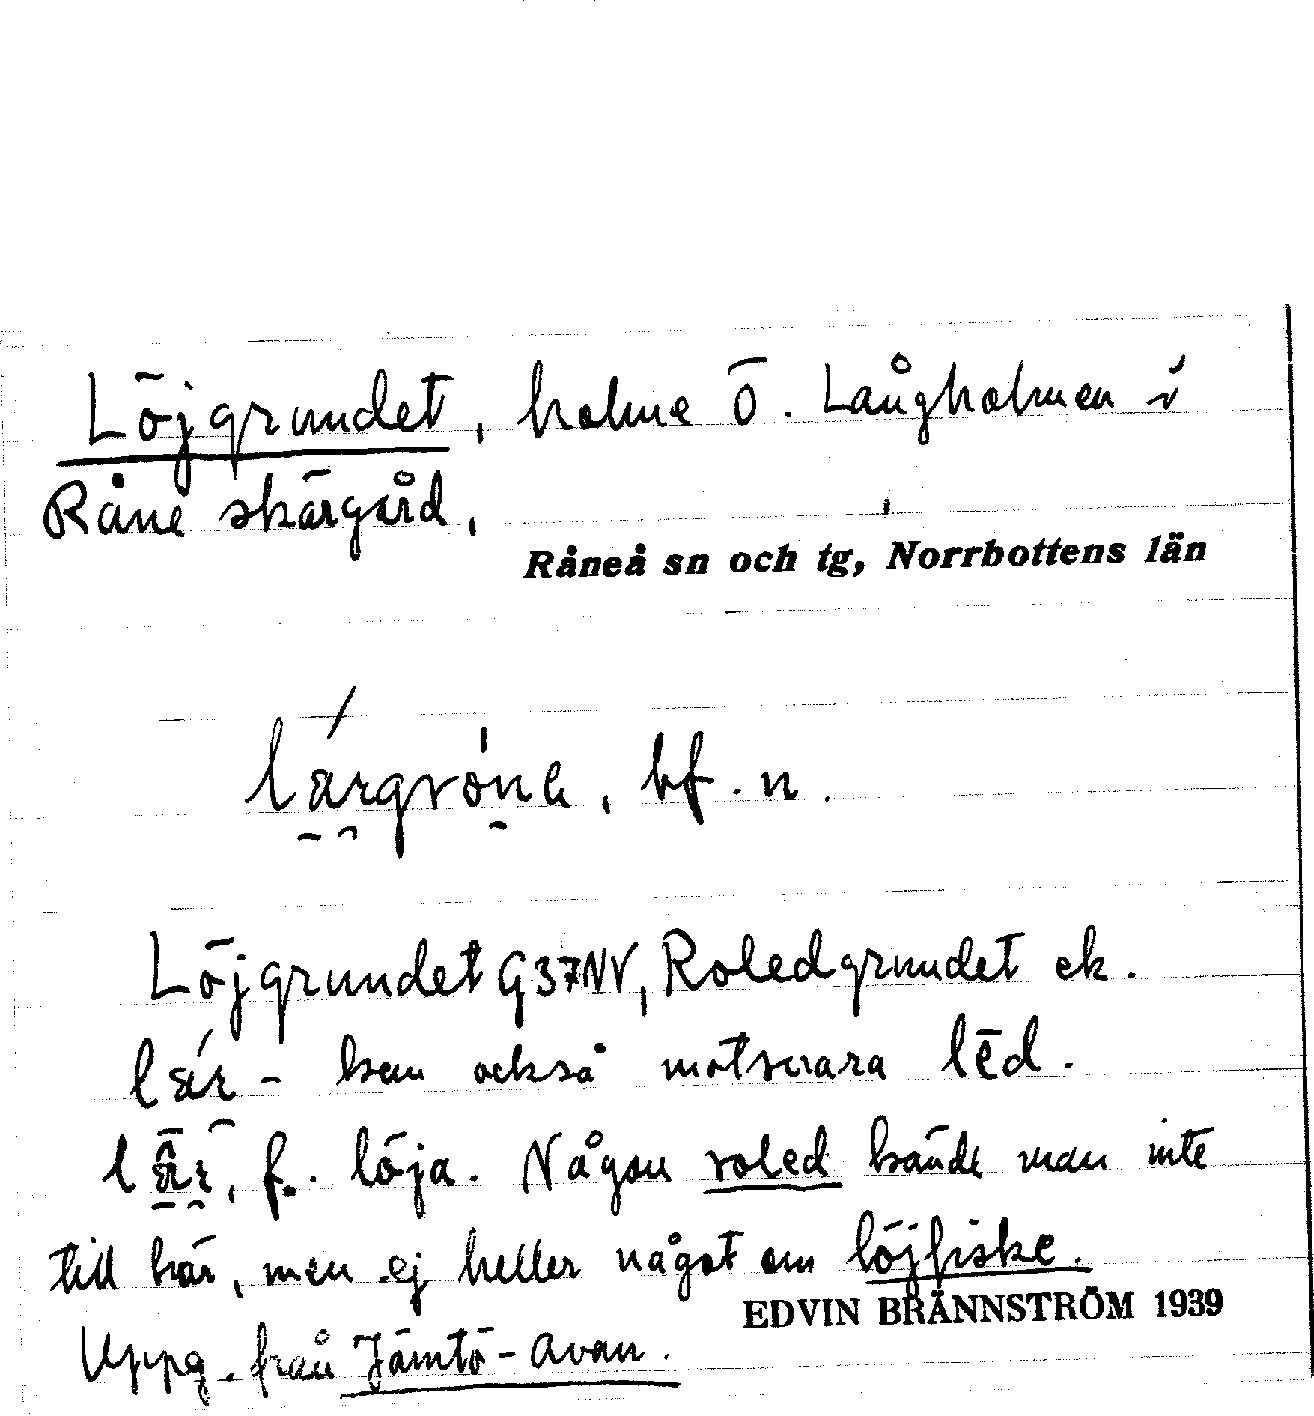 Löjgrundet, holme Ö. Långholmen i
Råne skärgård,
Råneå sn och tg, Norrbottens län
bf. n.
Löjgrundet G37NV, Roledgrundet ek.
lär- kan också motsvara lēd.
lär, f. löja. Någon roled kände man inte
till här, men ej heller något om löjfiske.
EDVIN BRÄNNSTRÖM 1939
Uppg. från Jämtö-Avan.